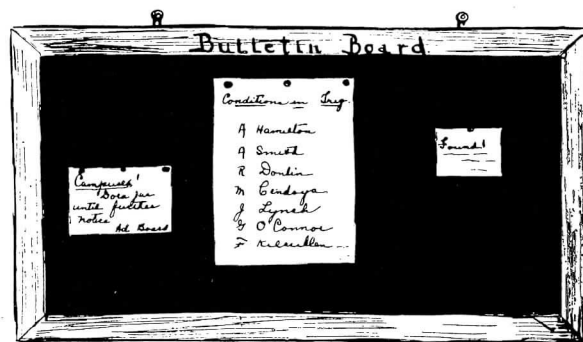 Bulletin Board
Campuself!
Does jue
until further
notes
Ad Board
Conditions in Trig.
A Hamilton
A Smith
R Donlin
M Cendoya
J Lynch
G O'Connor
F
Found!